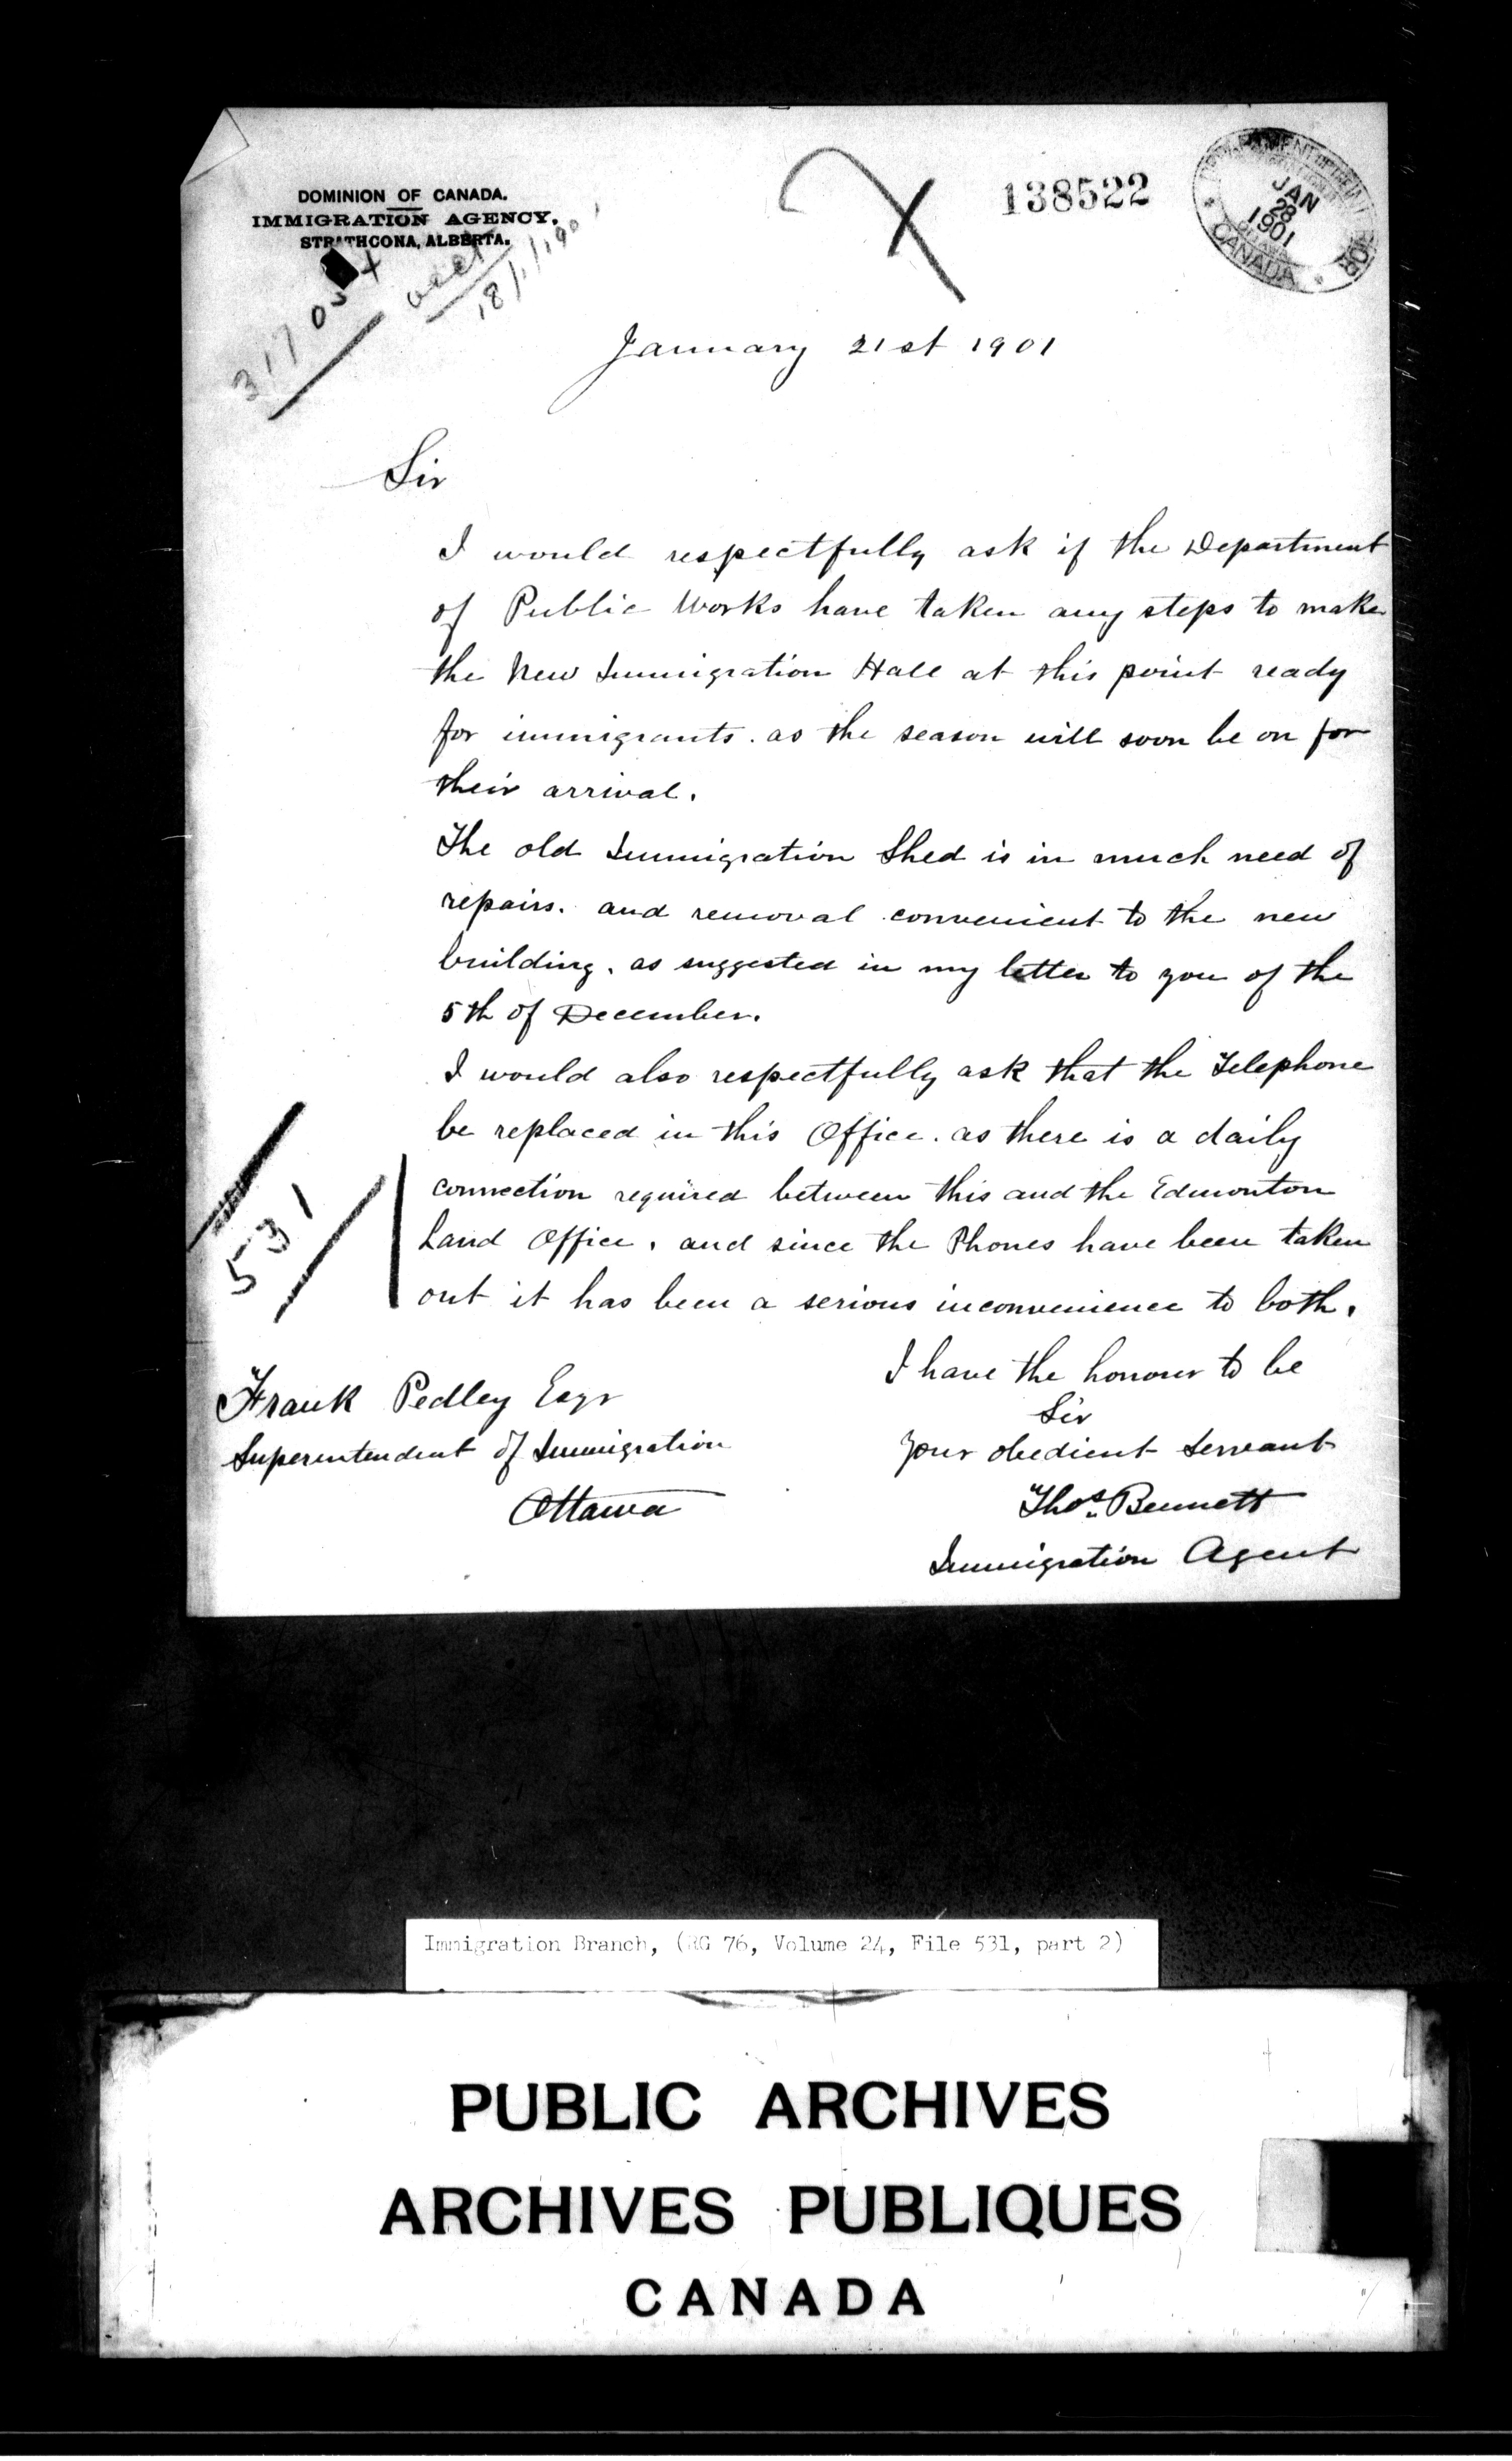 DOMINION OF CANADA.
IMMIGRATION AGENCY,
STRATHCONA, ALBERTA.
138522
JAN
28
1901
OTTAWA
CANADA
January 21st 1901
Sir
I would respectfully ask if the Department
of Public Works have taken any steps to make
the New Immigration Hall at this point ready
for immigrants. as the season will soon be on for
their arrival.
The old Immigration Shed is in much need of
repairs. and removal convenient to the new
building. as suggested in my letter to you of the
5th of December.
I would also respectfully ask that the Telephone
be replaced in this Office. as there is a daily
connection required between this and the Edmonton
Land Office. and since the Phones have been taken
out it has been a serious inconvenience to both.
531
I have the honour to be
Sir
Your obedient Servant
Thos. Bennett
Immigration Agent
Frank Pedley Esqr
Superintendent of Immigration
Ottawa
Immigration Branch, (RG 76, Volume 24, File 531, part 2)
PUBLIC ARCHIVES
ARCHIVES PUBLIQUES
CANADA